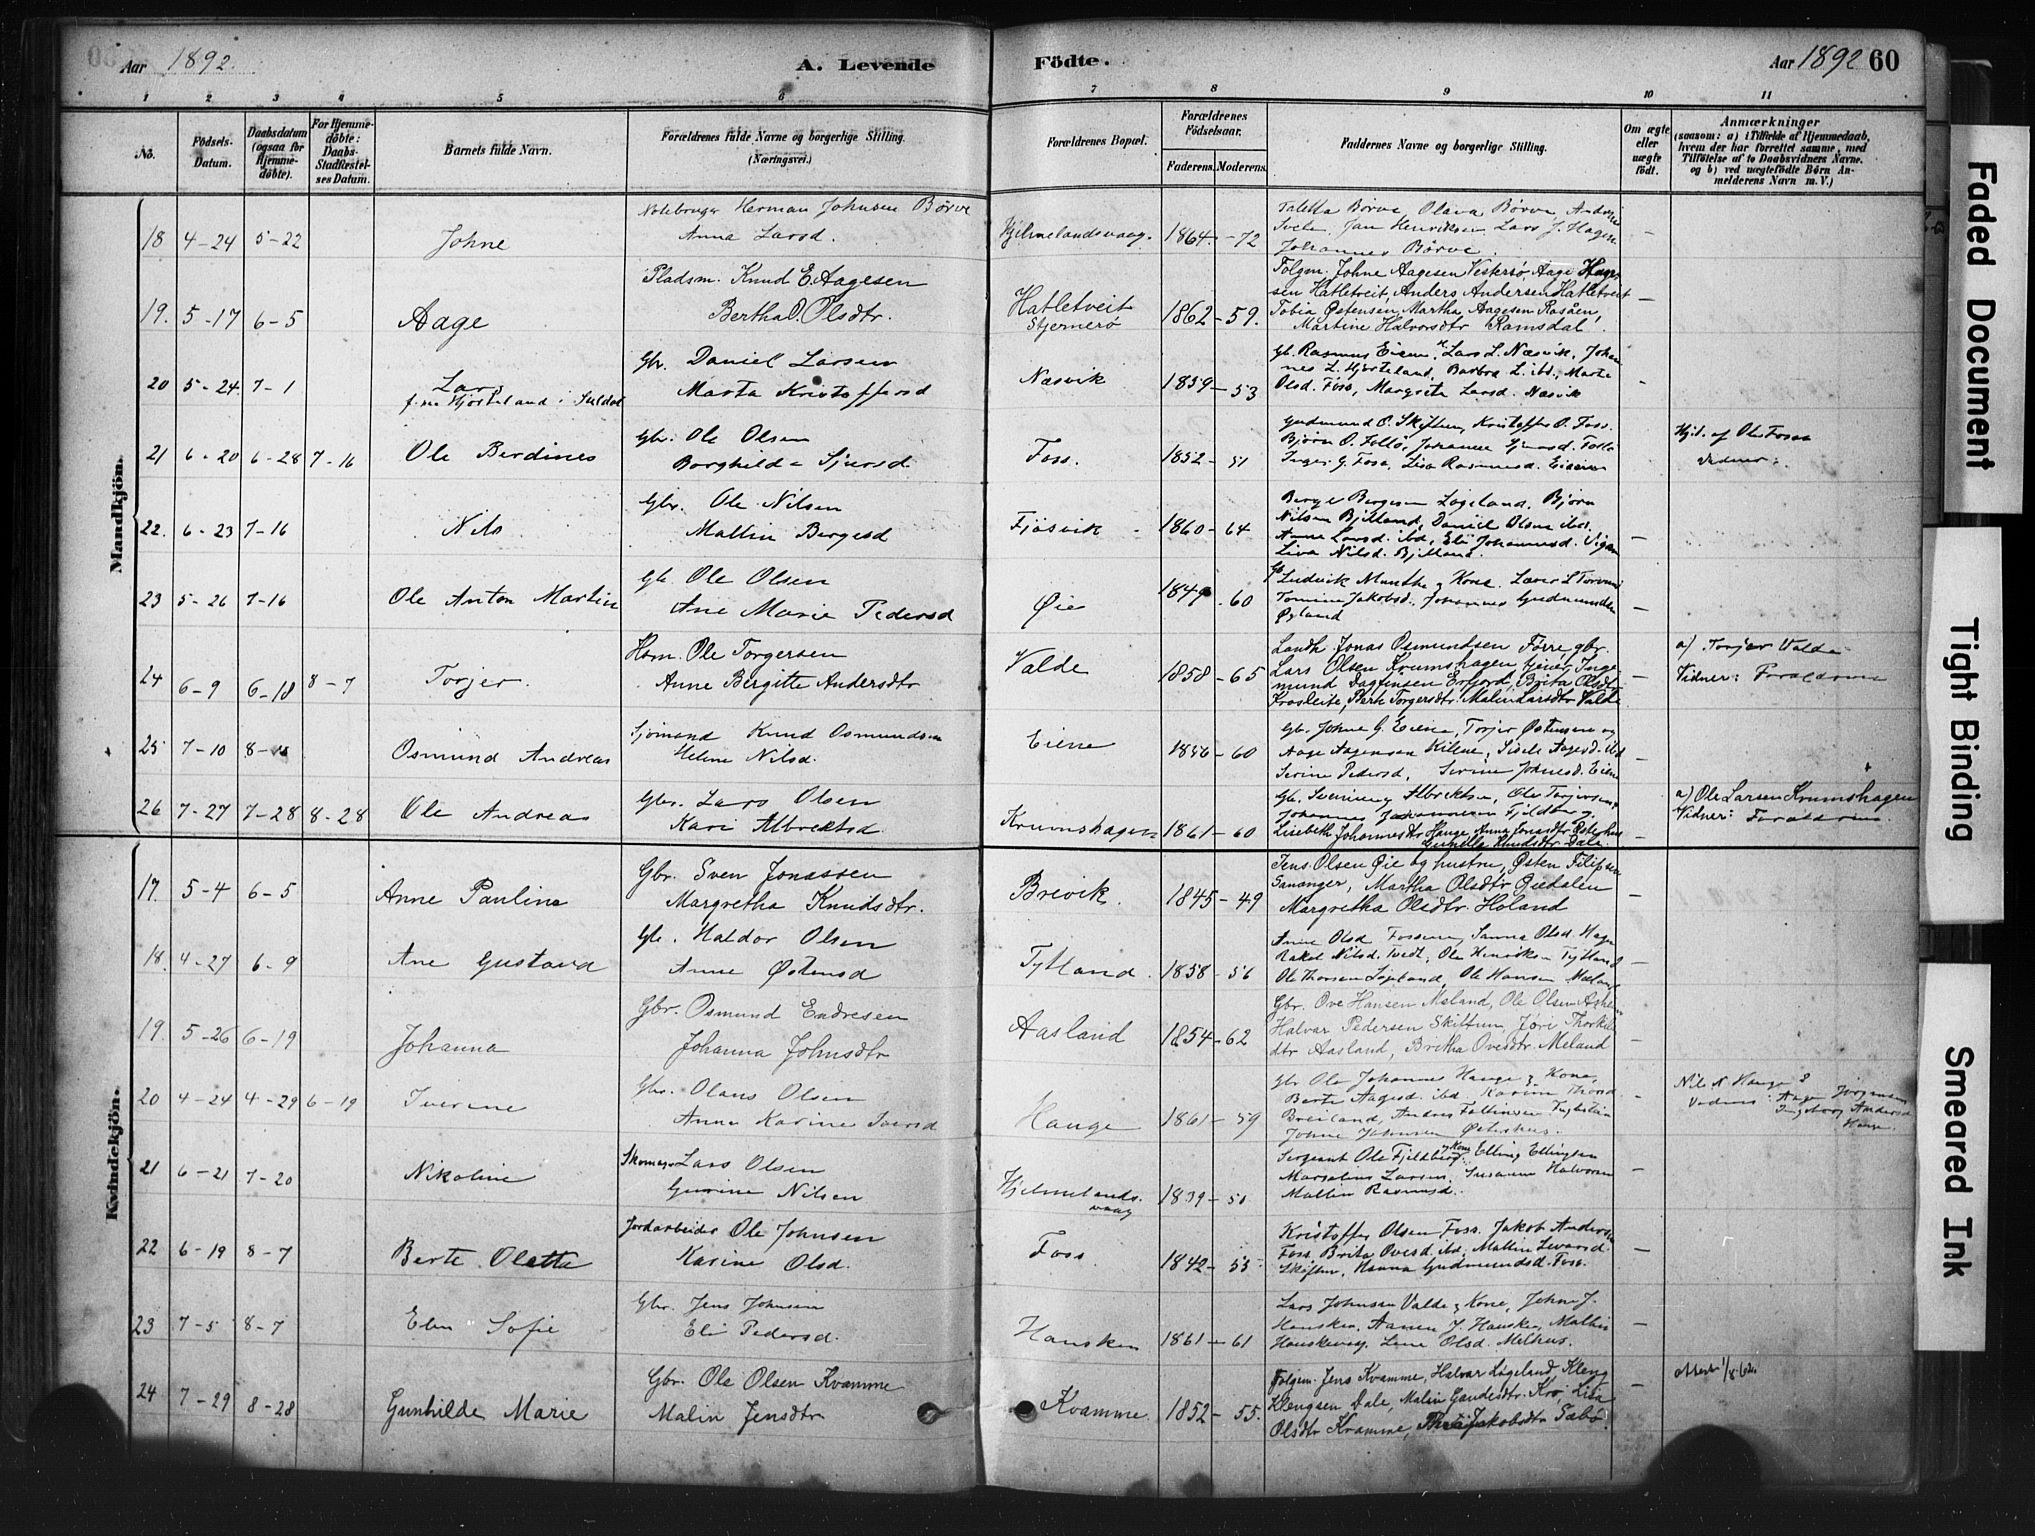 Aar 1892.
A. Levende
Födte.
Aar 1892
60
1 2 3 4 5 6 7 8 9 10 11
No.
Födsels-
Datum.
Daabsdatum
(ogsaa for
Hjemme-
döbte).
For Hjemme-
döbte:
Daabs-
Stadfæstel-
ses Datum.
Barnets fulde Navn.
Forældrenes fulde Navne og borgerlige Stilling.
(Næringsvei.)
Forældrenes Bopæl.
Forældrenes
Födselsaar.
Faderens.
Moderens.
Faddernes Navne og borgerlige Stilling.
Om ægte
eller
uægte
födt.
Anmærkninger
(saasom: a) i Tilfælde af Hjemmedaab,
hvem der har forrettet samme, med
Tilföielse af to Daabsvidners Navne.
og b) ved uægtefödte Börn An-
melderens Navn m. V.)
Mandkjön.
18 4-24 5-22 Johne
Herman Johnsen Børve
Anna Larsd.
Hjelmelandsvaag. 1864 -72
Taletta Børve Olava Børve
Jan Henriksen Lars J. Hagen
Johannes Børve
19. 5-17 6-5 Aage
Pladsm. Knud E. Aagesen
Bertha O. Olsdtr.
Hatletveit
Stjernerø
1862-59.
Folgm. Johne Aagesen Vestersø, Aage
Hatletveit, Anders Andersen Hatletveit
Tobia Østensen, Martha Aagesen
Martine Halvorsdtr Ramsdal.
20 5-24 7-1 Lars
Hjorteland i Suldal
Gbr. Daniel Larsen
Marta Kristoffersd
Næsvik 1859-53
Gb. Rasmus Eiene, Lars L. Næsvik, Johan
nes L. Hjorteland, Barbra L. ibd., Marte
Olsd. Foss, Margrete Larsd. Næsvik
21 6-20 6-28 7-16 Ole Berdines
Gbr. Ole Olsen
Borghilda Sjursd
Foss. 1852-51
Gudmund O. Skiftun, Kristoffer O. Foss.
Inger G. Foss, Lisa Rasmusd. Eiene
Hjd. af Ole Fossa
22. 6-23 7-16 Nils
Gbr. Ole Nilsen
Mallin Bergesd
Fjøsvik 1860-64
Berge Bergesen Løgeland, Bjørn
Nilsen Bjelland, Daniel Olsen ibd.
Anna Larsd. ibd, Eli Johannesd.
Nilsd. Bjelland
23 5-26 7-16 Ole Anton Martin
Gb. Ole Olsen
Ane Marie Pedersd
Øie 1849-60
Ludvik Munthe & Kone
Jakobsd. Johannes Gudmundsen
Øyland
24 6-9 6-18 8-7 Torjer.
Hsm. Ole Torgersen
Anne Bergitte Andersdtr
Valde 1858-65
Landh. Jonas Osmundsen Førre, gbr.
Lars Olsen Krumshagen, Inge-
mund Dagfinsen Erfjord, Brita Olsdtr
Berte Torgersdtr. Malin Larsdtr Valde
a) Torjer Valde
Vidner: Forældrene
25 7-10 8- Osmund Andreas
Sjømand Knud Osmundsen
Helene Nilsd.
Eiene 1856-60
Gb. Johne G. Eiene, Torjer Østensen og
Aage Aagensen Kilene, Aagesd. ibd
Serine Pedersd, Serine Johnsd. Eiene
26 7-27 7-28 8-28 Ole Andreas
Gbr. Lars Olsen
Kari Albrektsd
Krumshagen 1861-60
Gb. Albrektsen, Ole Torjersen
Johannes Johannesen Fjeldberg.
Lisebeth Johannesdtr Hauge, Anna Jonasdtr Østerhus
Gunilla Knudsdtr Dale.
a) Ole Larsen Krumshagen
Vidner: Forældrene
Kvindekjön.
17. 5-4 6-5 Anne Pauline
Gbr. Sven Jonassen
Margretha Knudsdtr.
Brevik. 1845-49
Jens Olsen Øie og hustru, Østen Filipsen
Martha Olsdtr
Margretha Olsdtr. Høland
18. 4-27 6-9 Ane Gustava
Gb. Haldor Olsen
Anne Østensd
Tytland. 1858-56
Rakel Nilsd. Tvedt, Ole Henriksen Tytland
Ole Thorsen Løgland, Ole Hansen Mæland
19. 5-26 6-19 Johanna
Gbr. Osmund Endresen
Johanna Johnsdtr
Aasland 1854-62
Gbr. Ove Hansen Meland, Ole Olsen
Halvar Pedersen Skiftun, Jøri Thorkils
dtr Aasland, Britha Ovesdtr. Meland
20 4-24 4-29 6-19 Iverine
Gbr. Olaus Olsen
Anna Karine Iversd
Hauge 1861-59
Gbr Ole Johannes Hauge & Kone,
Berte Aagesd. ibd Karine
Breiland,
Johne Johnsen Østerhus.
Nils N Hauge
Aage Jørgensen
Ingeborg Andersd
Hauge.
21 6-21 7-20 Nikoline
Skomager Lars Olsen
Gurine Nilsen
Hjelmelands-
vaag
1839-51
Sergeant Ole Fjeldberg & Kone, Elling Ellingsen
Marselius Larsen, Susanne Halvorsen
Mallin Rasmusd.
22 6-19 8-7 Berte Oletta
Jordarbeider Ole Johnsen
Karine Olsd.
Foss 1842-53
Kristoffer Olsen Foss, Jakob Andersen
Foss, Brita Ovesd. ibd, Mallin
Hanna Gudmundsd. Foss.
23 7-5 8-7 Elen Sofie
Gbr. Jens Johnsen
Eli Pedersd.
Hausken 1861-61
Lars Johnsen Valde & Kone, John J.
Hausken, Aanen J. Hausken, Mallin
Lene Olsd. Melhus.
24 7-29 8-28 Gunhilde Marie
Gbr. Ole Olsen Kvamme
Malin Jensdtr
Kvamme. 1852-55.
Folgem. Jens Kvamme, Halvar Løgeland, Kleng
Klengsen Dale, Malin Gaudesdtr. Kro Lisa
Olsdtr Kvamme, Jakobsdtr Sæbø
Attest 1/8 62.
Faded Document
Tight Binding
Smeared Ink